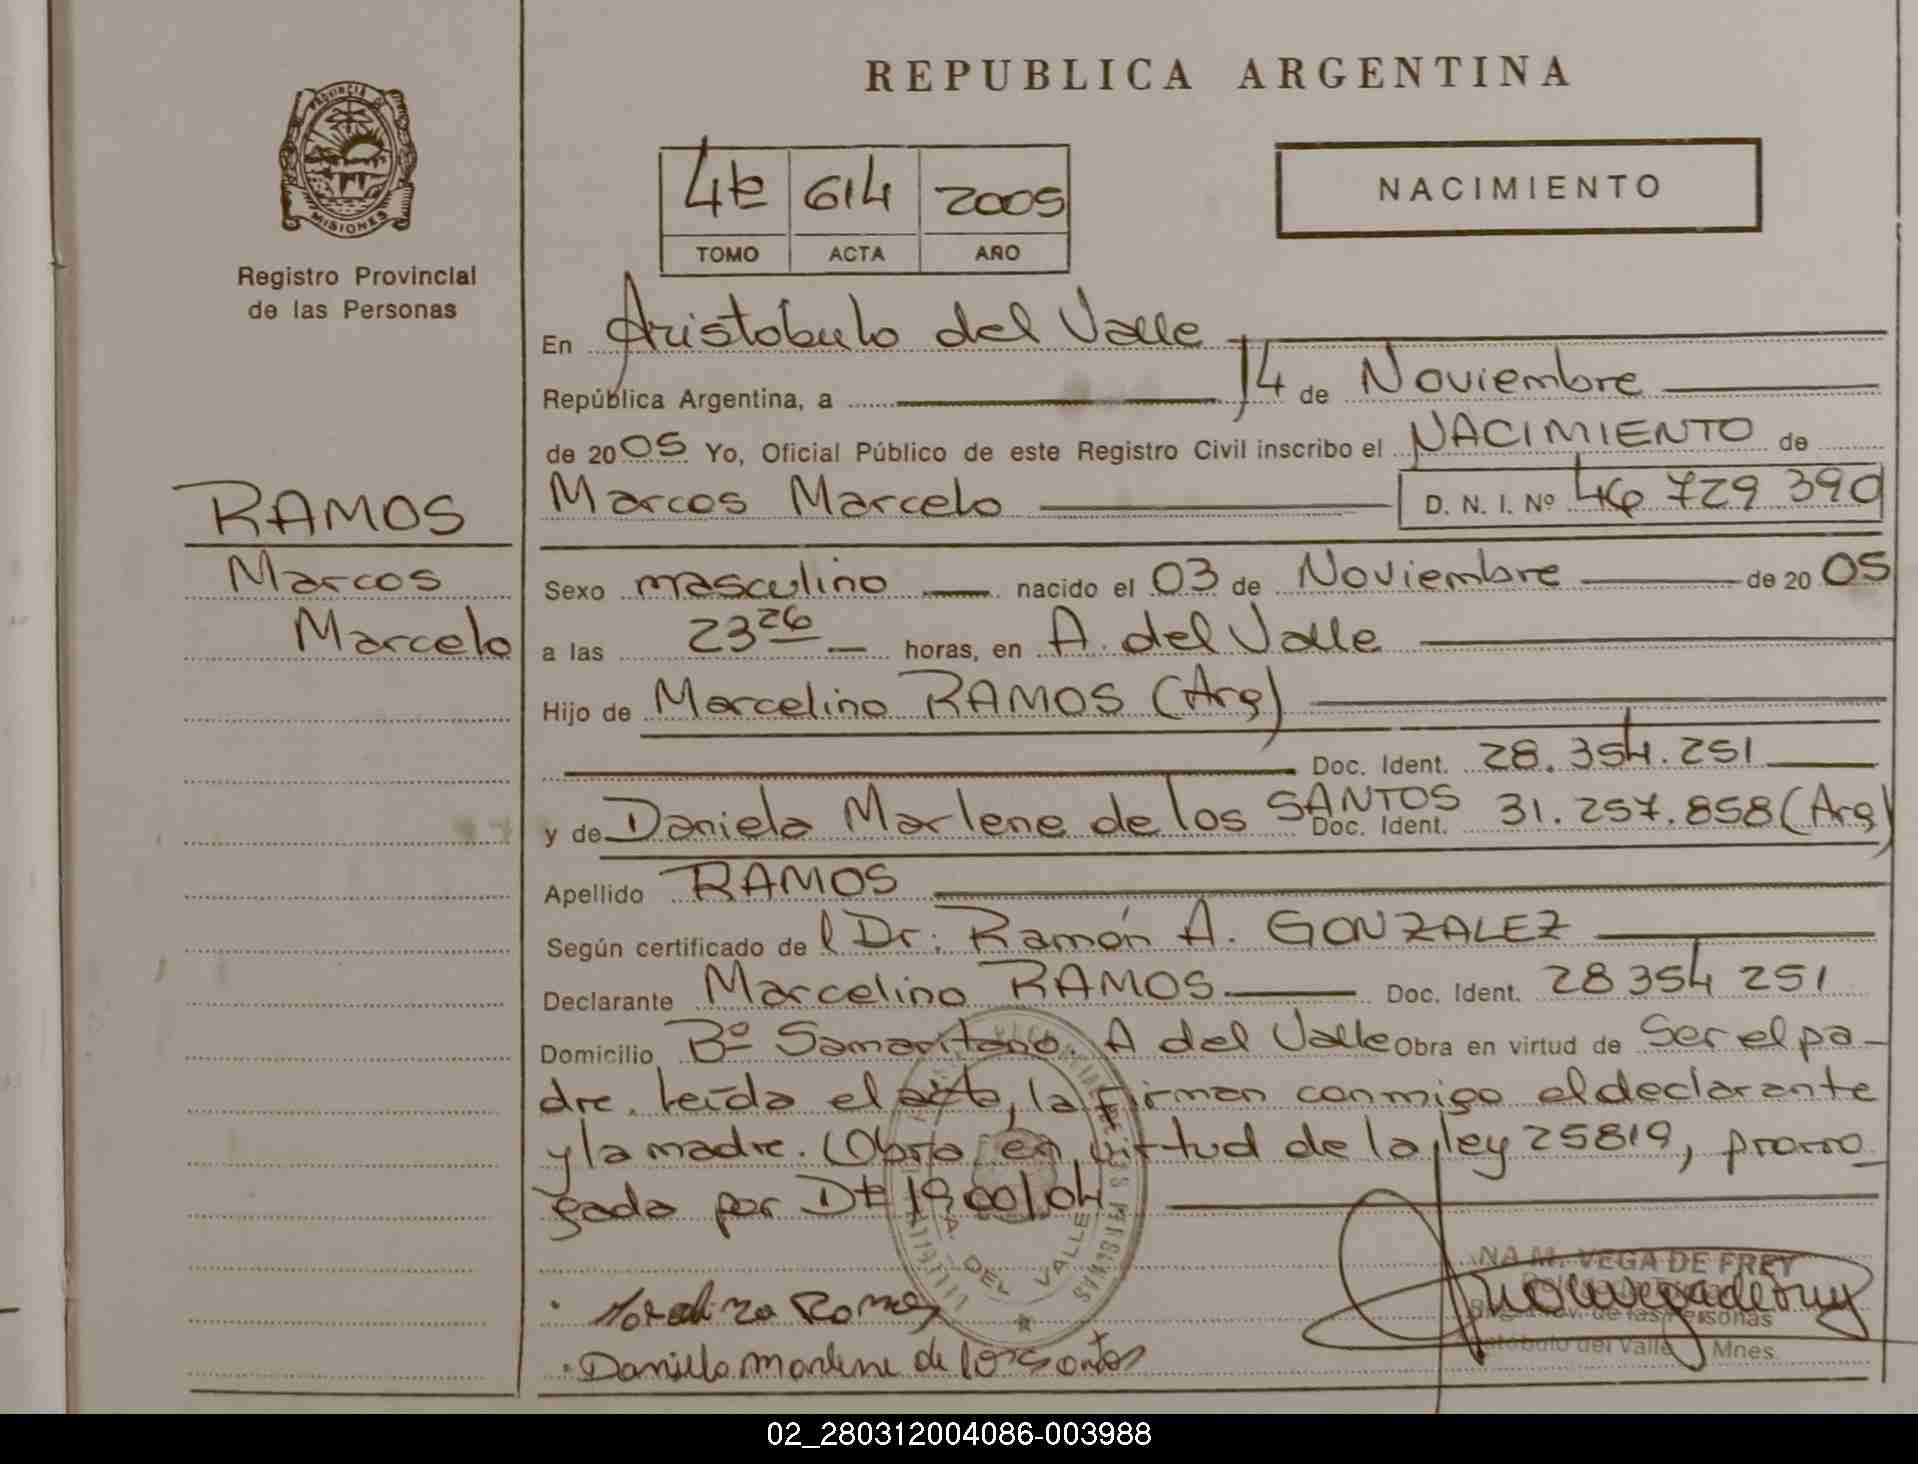 REPUBLICA ARGENTINA
PROVINCIA DE
MISIONES
Registro Provincial
de las Personas
4to 614 2005
TOMO ACTA AÑO
NACIMIENTO
En Aristóbulo del Valle
República Argentina, a 14 de Noviembre
de 2005 Yo, Oficial Público de este Registro Civil inscribo el NACIMIENTO de
RAMOS
Marcos
Marcelo
Marcos Marcelo D. N. I. Nº 46 729 390
Sexo masculino nacido el 03 de Noviembre de 2005
a las 23 26 horas, en A. del Valle
Hijo de Marcelino RAMOS (Arg)
Doc. Ident. 28.354.251
y de Daniela Marlene de los SANTOS Doc. Ident. 31.257.858 (Arg)
Apellido RAMOS
Según certificado de l Dr. Ramón A. GONZALEZ
Declarante Marcelino RAMOS Doc. Ident. 28 354 251
Domicilio Bº Samaritano. A del Valle Obra en virtud de Ser el pa-
dre. Leída el acta, la firman conmigo el declarante
y la madre. (Obra en virtud de la ley 25819, prorro
gada por Dto 1900/04
A. DEL VALLE
M. VEGA DE FREY
de las Personas
del Valle Mnes.
Ramos
Daniela Marlene de los Santos
02_280312004086-003988